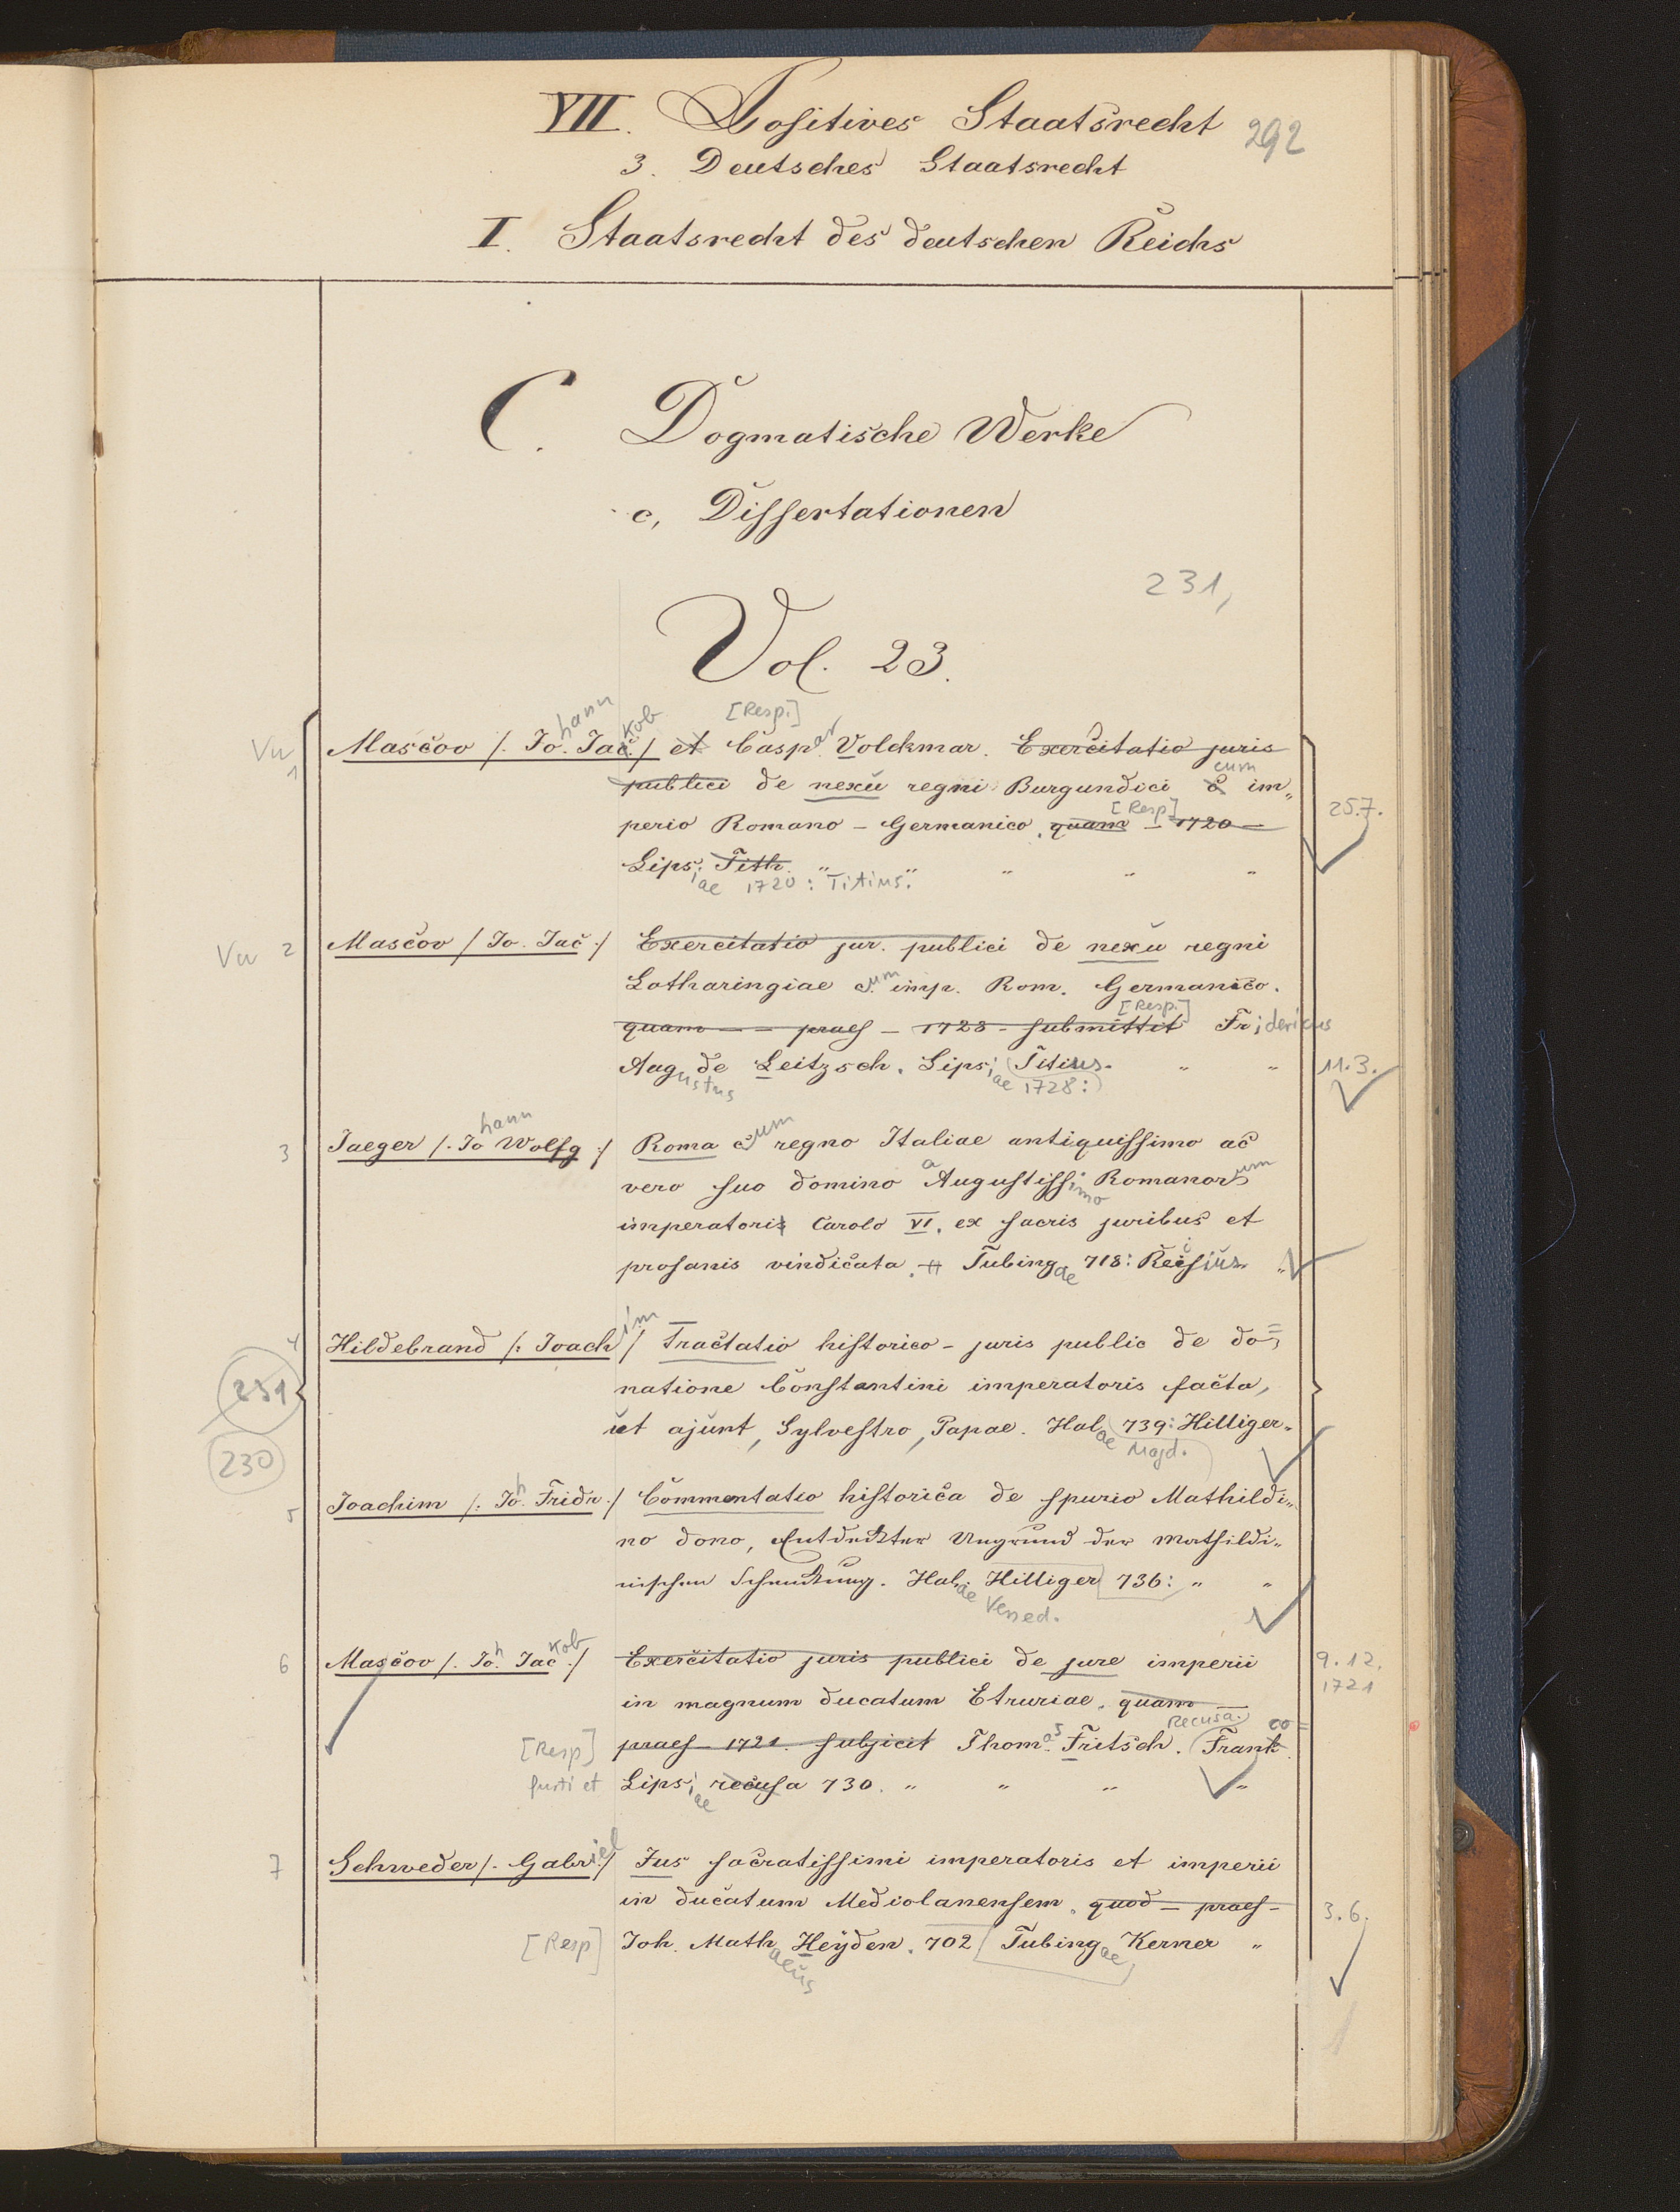 VII. Positives Staatsrecht 292
3. Deutsches Staatsrecht
I. Staatsrecht des deutschen Reichs
C. Dogmatische Werke
c, Dissertationen
231,
Vol. 23.
[Resp.]
1 Mascov /. Johann. Jakob ./ et Caspar Volckmar. Exercitatio juris
publici de nexu regni Burgundici c cum im„
perio Romano - Germanico. quam [Resp] - 1720 - 25.7.
Lips; Tith. " " " " "
ae 1720: Titius.
2 Mascov /. Jo. Jac ./ Exercitatio jur. publici de nexu regni
Lotharingiae cum imp. Rom. Germanico.
quam - - praes - 1728 - submittit [Resp.] Fridericus
Augustus de Leitzsch. Lips; Titius. " " 11.3.
ae 1728:
3 Jaeger /. Johann Wolfg ./ Roma cum regno Italiae antiquissimo ac
vero suo domino a Augustissimo Romanorum
imperatori Carolo VI. ex sacris juribus et
profanis vindicata. Tubingae 718: Reisius "
4 Hildebrand /: Joachim / Tractatio historico - juris public de do=
231 natione Constantini imperatoris facta,
ut ajunt, Sylvestro, Papae. Halae 739: Hilliger "
230 Magd.
5 Joachim /: Joh. Fridr ./ Commentatio historica de spurio Mathildi„
no dono, Entdeckter Ungrund der Mathildi„
nischen Schenkung. Halae Hilliger 736: " "
Vened.
6 Mascov /. Joh. Jakob ./ Exercitatio juris publici de jure imperii 9.12.
in magnum ducatum Etruriae. quam 1721
[Resp] praes - 1721. subjicit Thomas Fritsch. Recusa. Franco=
furti et Lips; ae recusa 730. " " " "
7 Schweder /. Gabriel ./ Jus sacratissimi imperatoris et imperii
in ducatum Mediolanensem. quod - praes - 3.6.
[Resp] Joh. Mathaeus Heyden. 702 Tubingae Kerner "